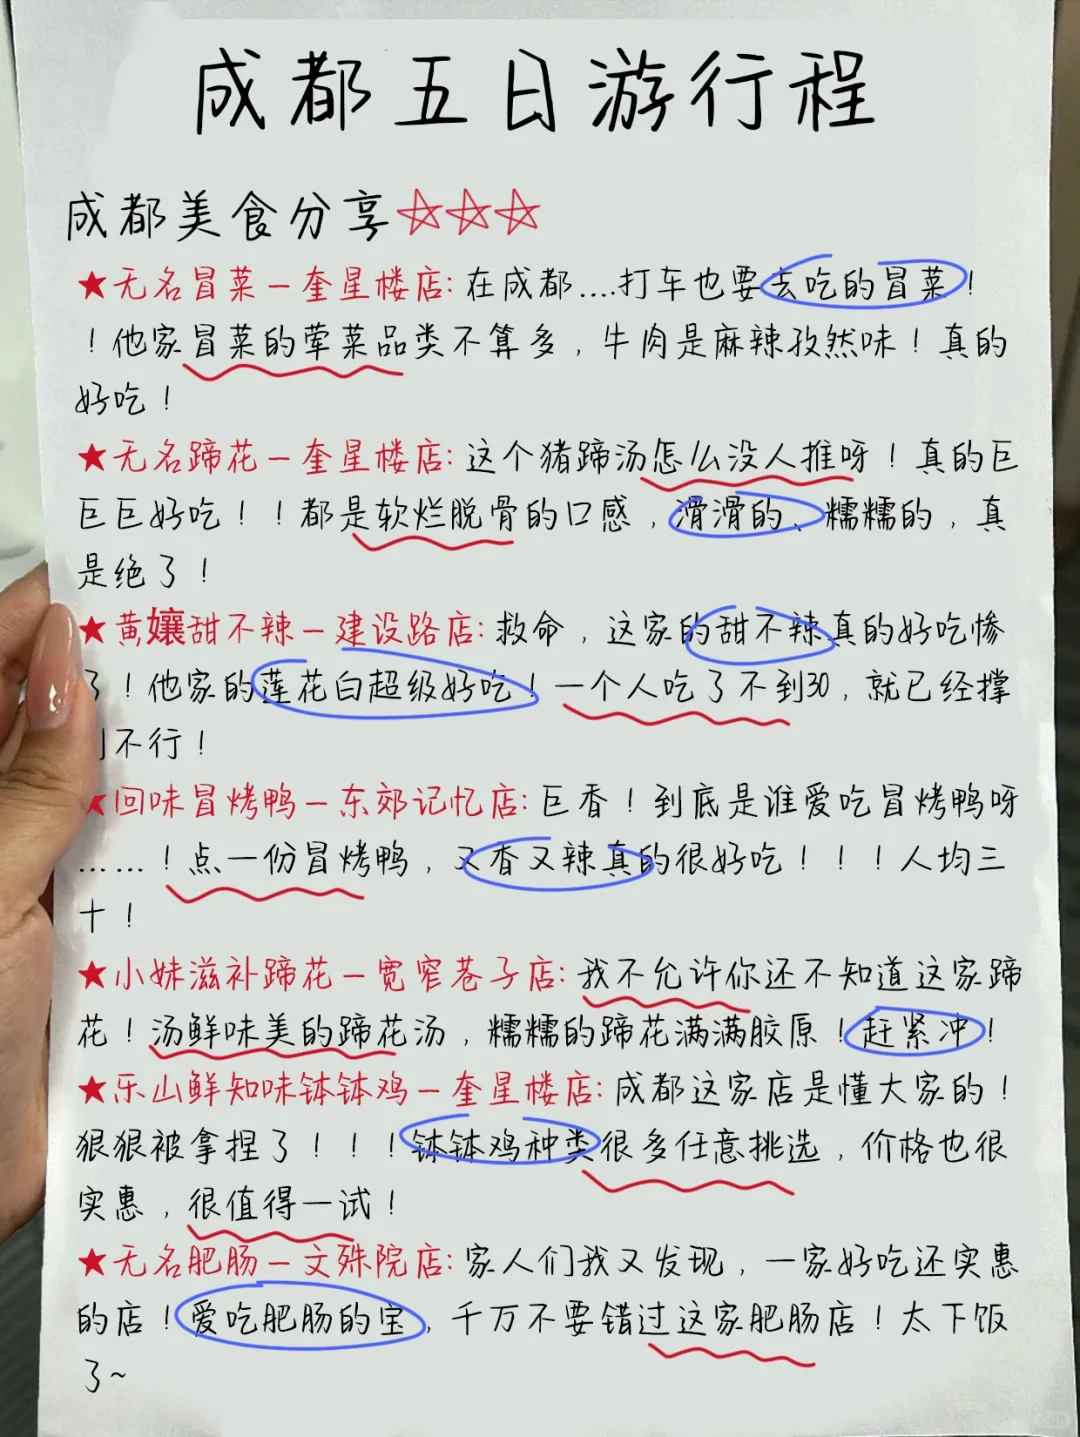 成都五日游行程
成都美食分享☆☆☆
★无名冒菜—奎星楼店:在成都....打车也要去吃的冒菜！
！他家冒菜的荤菜品类不算多，牛肉是麻辣孜然味！真的
好吃！
★无名蹄花—奎星楼店:这个猪蹄汤怎么没人推呀！真的巨
巨巨好吃！！都是软烂脱骨的口感，滑滑的、糯糯的，真
是绝了！
★黄孃甜不辣—建设路店:救命，这家的甜不辣真的好吃惨
了！他家的莲花白超级好吃！一个人吃了不到30，就已经撑
不行！
★回味冒烤鸭—东郊记忆店:巨香！到底是谁爱吃冒烤鸭呀
……！点一份冒烤鸭，又香又辣真的很好吃！！！人均三
十！
★小妹滋补蹄花—宽窄巷子店:我不允许你还不知道这家蹄
花！汤鲜味美的蹄花汤，糯糯的蹄花满满胶原！赶紧冲！
★乐山鲜知味钵钵鸡—奎星楼店:成都这家店是懂大家的！
狠狠被拿捏了！！！钵钵鸡种类很多任意挑选，价格也很
实惠，很值得一试！
★无名肥肠—文殊院店:家人们我又发现，一家好吃还实惠
的店！爱吃肥肠的宝，千万不要错过这家肥肠店！太下饭
了~